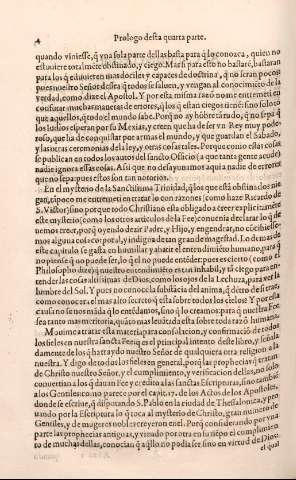 Prologo desta quarta parte.
quando viniesse, q̃ vna sola parte dellas basta para q̃ lo conozca, quien no
estuuiere totalmẽte obstinado, y ciego. Mas si para esto no ballarẽ, bastaran
para los q̃ estuuieren mas dociles y capaces de doctrina, q̃ no seran pocos:
pues nuestro Señor dessea q̃ todos se saluen, y vengan al conocimiẽto de la
verdad, como dize el Apostol. Y por esta misma razõ no me entremeti en
confutar muchas maneras de errores, q̃ los q̃ estan ciegos tienẽ: sino solo lo
que aquellos, q̃ todo el mundo sabe. Porq̃ no ay hõbre tã rudo, q̃ no sepa q̃
los Iudios esperan por su Mexias, y creen que ha de ser vn Rey muy pode-
roso, que ha de conquistar por armas el mundo, y que guardan el Sabado,
y las otras ceremonias de la ley, y otras cosas tales. Porque como estas cosas
se publican en todos los autos del sancto Officio (a que tanta gente acude)
nadie ignora estas cosas. Assi que no desayunamos aqui a nadie de errores
que no sepa, pues estos son tan notorios.
En el mysterio de la Sanctissima Trinidad, q̃ los que està obstinados nie
gan, tãpoco me entremeti en tratarlo con razones (como haze Ricardo de
S. Victor) sino porque todo Christiano esta obligado a creer explicitamẽte
este mysterio (como los otros articulos de la Fee) conuenia declarar lo q̃ de
uemos creer, porq̃ oyendo dezir Padre, y Hijo, y engendrar, no cõcibiesse-
mos alguna cosa corporal, y indigna de tan grande magestad. Lo demas de
este capitulo se gasta en humillar y abatir el entendimiẽto humano, para q̃
no piense q̃ no puede ser, lo q̃ el no puede entẽder: pues es cierto (como el
Philosopho dize) q̃ nuestro entendimiẽto es tan inhabil, y tã ciego para en-
tender las cosas altissimas de Dios, como los ojos de la Lechuza, para ver la
lumbre del Sol. Y pues no conoce la substãcia del anima, q̃ dentro de si trae,
como conocera el mas alto secreto q̃ esta sobre todos los cielos? Y por esta
causa no se nos mãda q̃ lo entẽdamos, sino q̃ lo creamos: para q̃ nuestra Fee
sea tanto mas meritoria, quãto mas leuãtada esta sobre toda razõ humana.
Moutime a tratar esta materia para consolacion, y confirmaciõ de todos
los fieles en nuestra sancta Fee: q̃ es el principal intento deste libro, y señala
damente de los q̃ ha traydo nuestro Señor de qualquiera otra religion a la
nuestra. Y digo de todos los fieles en general, porq̃ las prophecias q̃ tratan
de Christo nuestro Señor, y el cumplimiento, y verificacion dellas, no solo
conuertian a los q̃ dauan Fee y credito a las sanctas Escripturas, sino tambiẽ
a los Gentiles: como parece por el capit. 17. de los Actos de los Apostoles,
donde se escriue, q̃ disputando S. Pablo en la ciudad de Thessalonica, y pro
uando por la Escriptura lo q̃ toca al mysterio de Christo, gran numero de
Gentiles, y de mugeres nobles creyeron en el. Porq̃ considerando por vna
parte las prophecias antiguas, y viendo por otra en su tiẽpo el cumplimien
to de muchas dellas, conocian q̃ aq̃llo no podia ser sino en virtud de Dios:
el qual